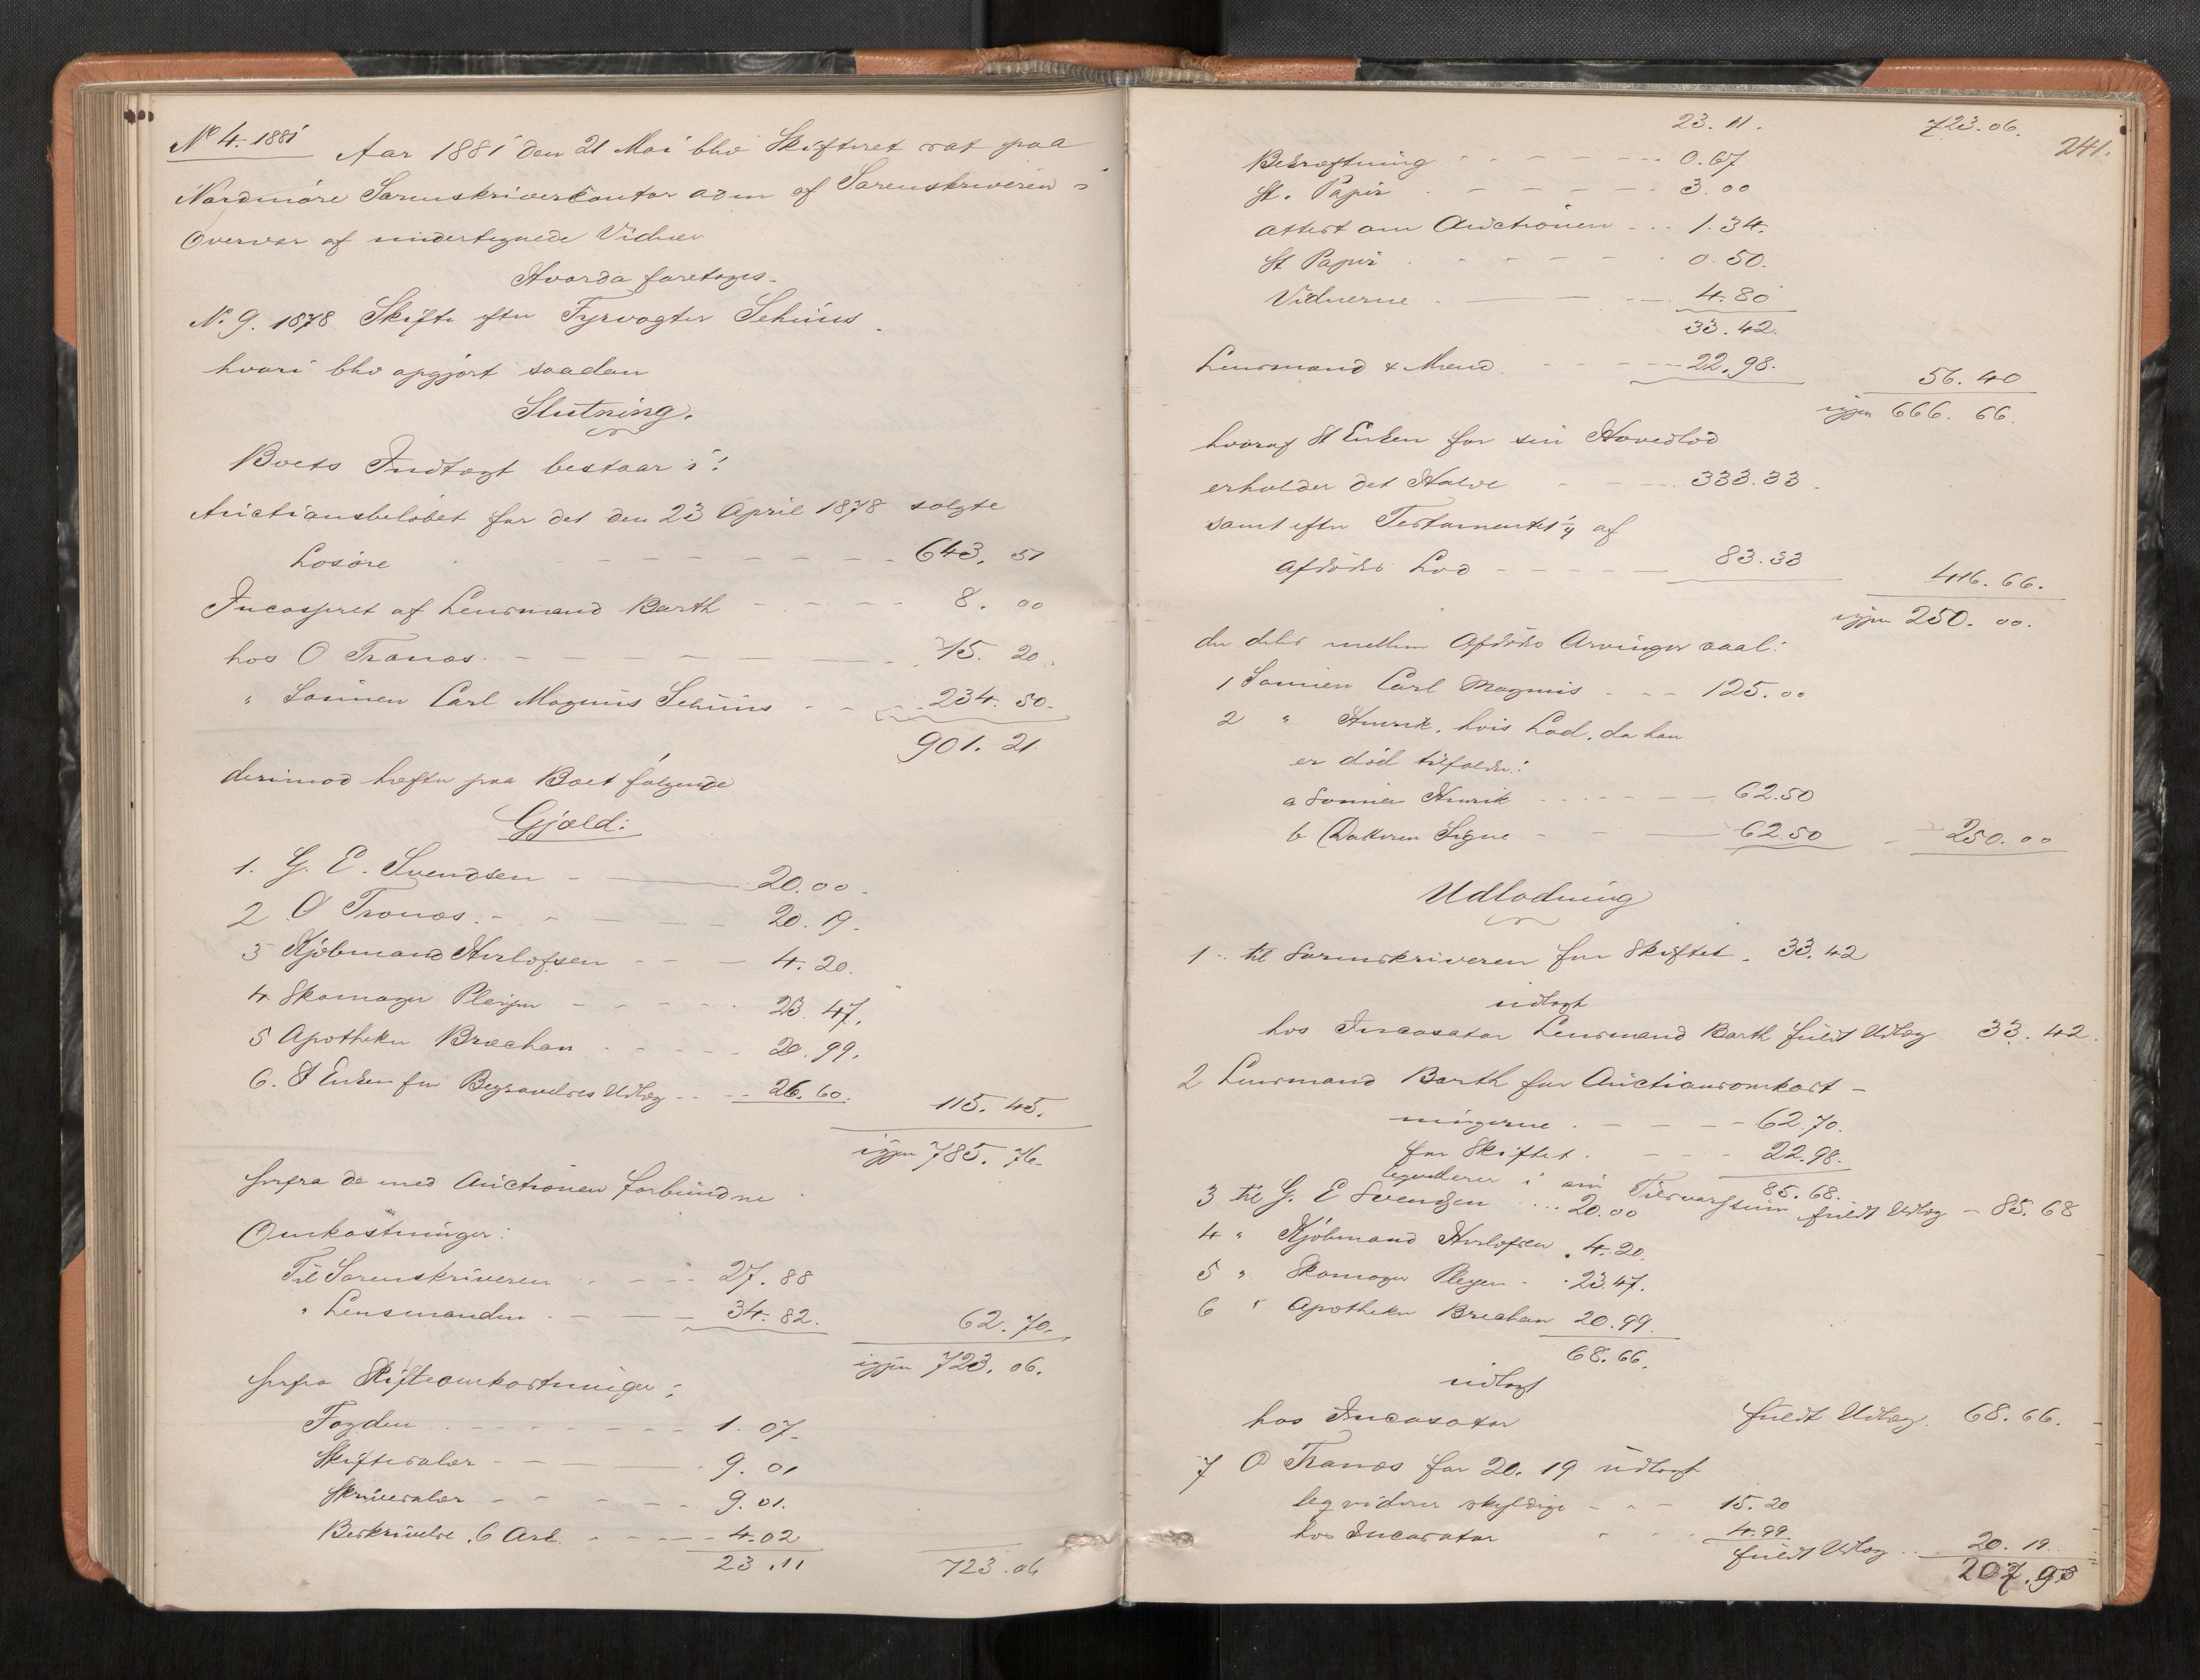 No 4. 1881 Aar 1881 den 21 Mai blev Skifteret sat paa
Nordmöre Sorenskriverkontor adm af Sorenskriveren i
Overvær af undertegnede Vidner
Hvorda foretoges.
No 9. 1878 Skifte efter Fyrvogter Schiiis
hvori blev opgjort saadan
Slutning.
Boets Indtægt bestaar i:
Auctionsbelöbet for det den 23 April 1878 solgte
Losöre - - - 643. 51
Incasseret af Lensmand Barth - - - 8. 00
hos O Tranas - - - 15. 20
" Sönnen Carl Magnus - - 234. 50.
901. 21.
derimod hefter paa Boet fölgende
Gjæld:
1. G. E. Svendsen - 20.00.
2 O Tranas. - - - 20. 19.
3 Kjöbmand Herlofsen - - - 4. 20.
4. Skomager Pleyer - - - 23. 47.
5 Apotheker Bræchan - - - 20. 99.
6. Enken for Begravelses Udlæg - - 26. 60. 115. 45.
igjen 785. 76.
herfra de med Auctionen forbundne
Omkostninger:
Til Sorenskriveren - - - 27. 88
" Lensmanden - - - 34. 82. 62. 70.
igjen 723. 06.
herfra Skifteomkostninger:
Fogden - - - 1. 07.
Skiftesalær - - - 9. 01
Skriversalær - - - 9. 01.
Beskrivelse 6 Ark - - - 4. 02
23. 11 723. 06
241.
23. 11. 723. 06.
Bekræftning - - - 0. 67
St. Papir - - - 3. 00
attest om Auctionen - - 1. 34.
St Papir - - - 0. 50.
Vidnerne - - - 4. 80
33. 42.
Lensmand & Mænd - - - 22. 98. 56. 40
igjen 666. 66.
hvoraf Enken for sin Hovedlod
erholder det Halve - - - 333. 33.
samt efter Testamentet ¼ af
afdödes Lod - - - 83. 33 416. 66.
igjen 250. 00.
der deles mellem Afdödes Arvinger saal:
1 Sönnen Carl Magnus - - - 125. 00
2 " Henrik, hvis Lod, da han
er död tilfalder:
a Sönnen Henrik - - - 62. 50
b Datteren Signe - - 62. 50 - 250. 00
Udlodning
1 til Sorenskriveren for Skiftet. 33. 42
udlagt
hos Incasator Lensmand Barth fuldt Udlæg 33. 42.
2 Lensmand Barth for Auctionsomkost-
ningerne - - - 62. 70.
for Skiftet. - - - 22. 98.
85. 68.
i sin fuldt Udlæg - 85. 68
3 til G. E Svendsen ... 20.00
4 " Kjöbmand Herlofsen 4. 20.
5 " Skomager Pleyer - 23. 47.
6 " Apotheker Brechan 20. 99.
68. 66.
udlagt
hos Incasator fuldt Udlæg. 68. 66.
7 O Tranas for 20. 19 udlagt
skyldige - - 15. 20
hos Incasator - - - 4. 99.
fuldt Udlæg 20. 19.
207. 95